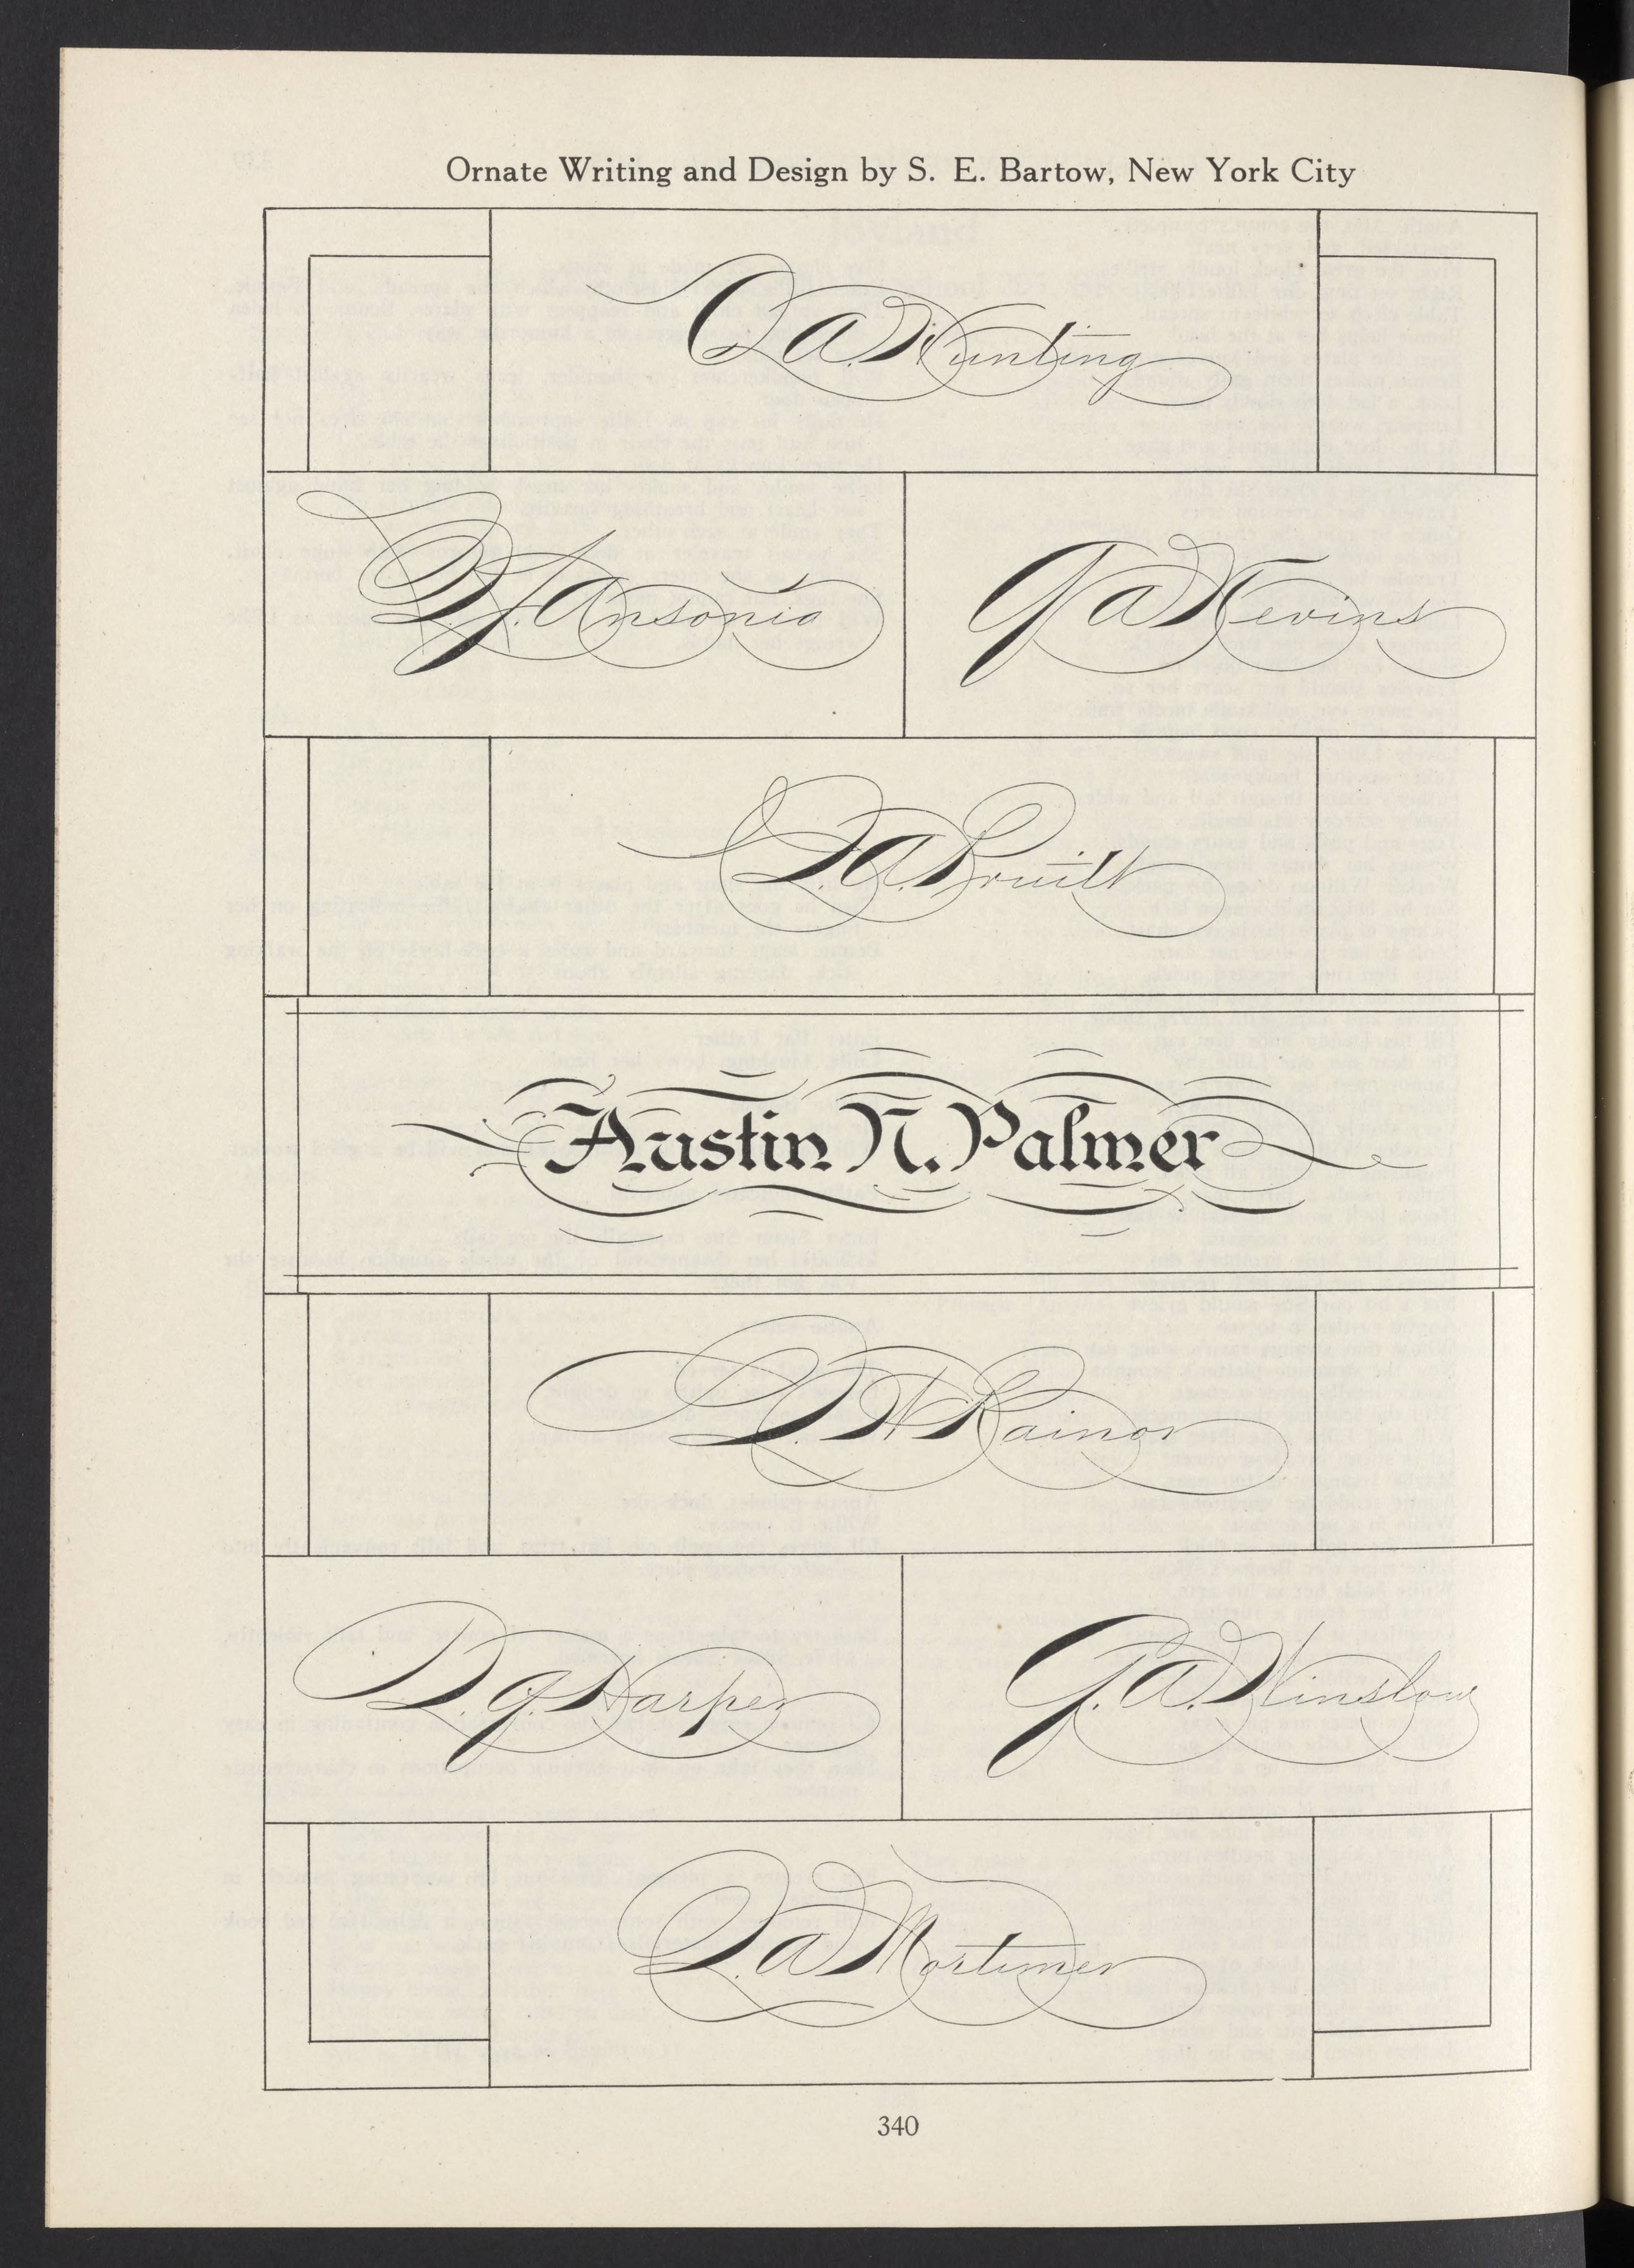 Ornate Writing and Design by S. E. Bartow, New York City
A. Hunting
Ansonia
G A Nevins
A. Pruitt
Austin N. Palmer
N Rainor
D. G. Harper
G. A. Winslow
A Mortimer
340